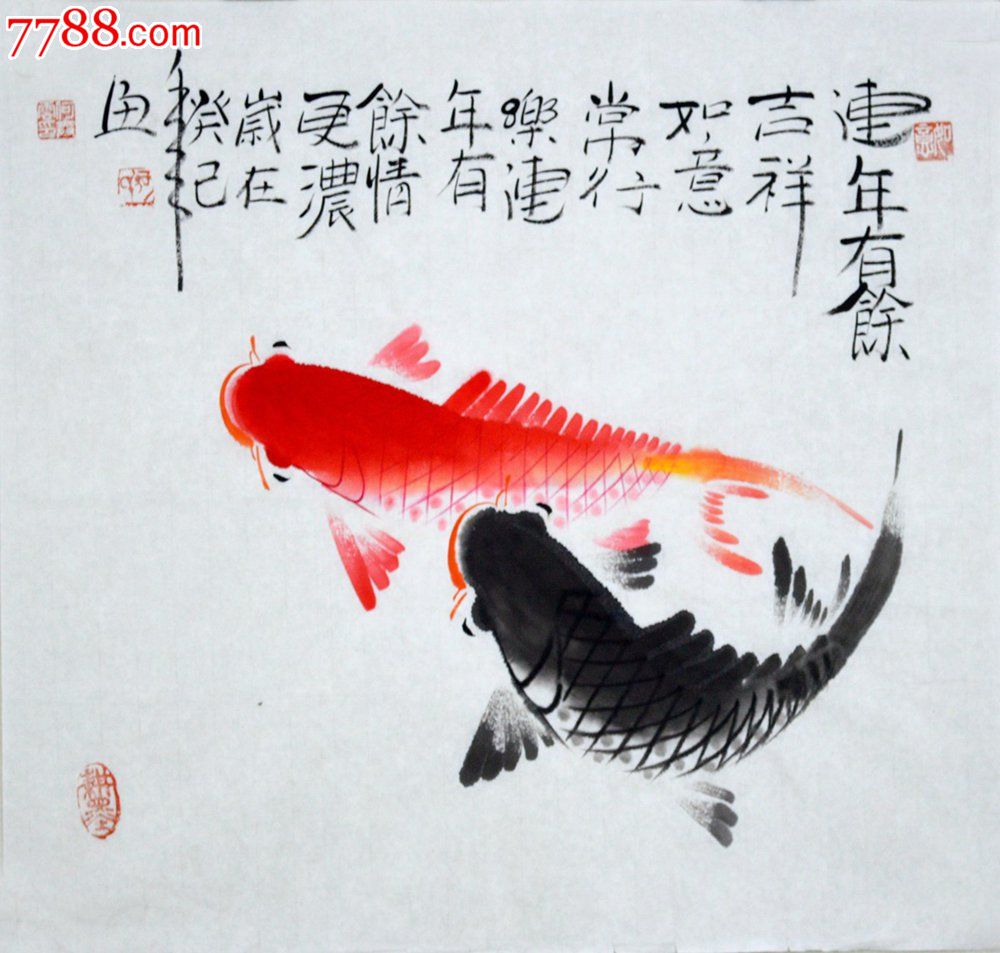 7788.com
連年有餘
吉祥
如意
常行
樂連
年有
餘情
更濃
歲在
癸巳
年